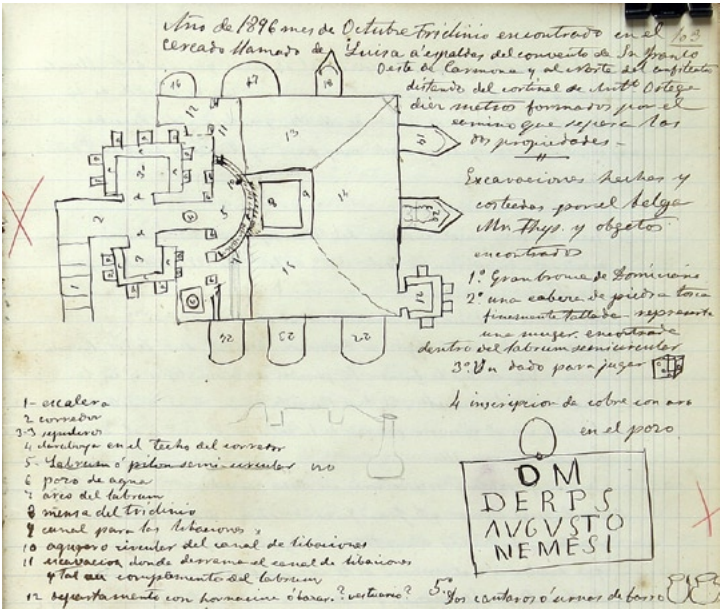 Año de 1896 mes de Octubre Triclinio encontrado en el 103
cercado llamado de Luisa a espaldas del convento de Sn Franco
Oeste de Carmona y al Norte del anfiteatro
distando del cortinal de Antto Ortega
diez metros formados por el
camino que separa las
dos propiedades -
Excavaciones hechas y
costeadas por el belga
Mr. Thys. y objetos
encontrados
1º Gran bronce de Domiciano
2º una cabeza de piedra tosca
finamente tallada representa
una muger. encontrada
dentro del labrum semicircular
3º Un dado para jugar
4 inscripcion de cobre con aro
en el pozo
D M
DERPS
AUGUSTO
NEMESI
5º Dos cantaros ó urnas de barro
1- escalera
2 corredor
3-3
4 en el techo del corredor
5- Labrum ó pilon semi-circular no
6 pozo de agua
7 arco del labrum
8 mensa del triclinio
9 canal para las libaciones
10 agujero circular del canal de libaciones
11 escavacion donde derrama el canal de libaciones
y tal vez complemento del labrum
12 departamento con hornacina ó larar. ? vestuario?
16
17
18
12
11
13
19
14
20
15
21
22
23
24
2
1
3
5
8
9
6